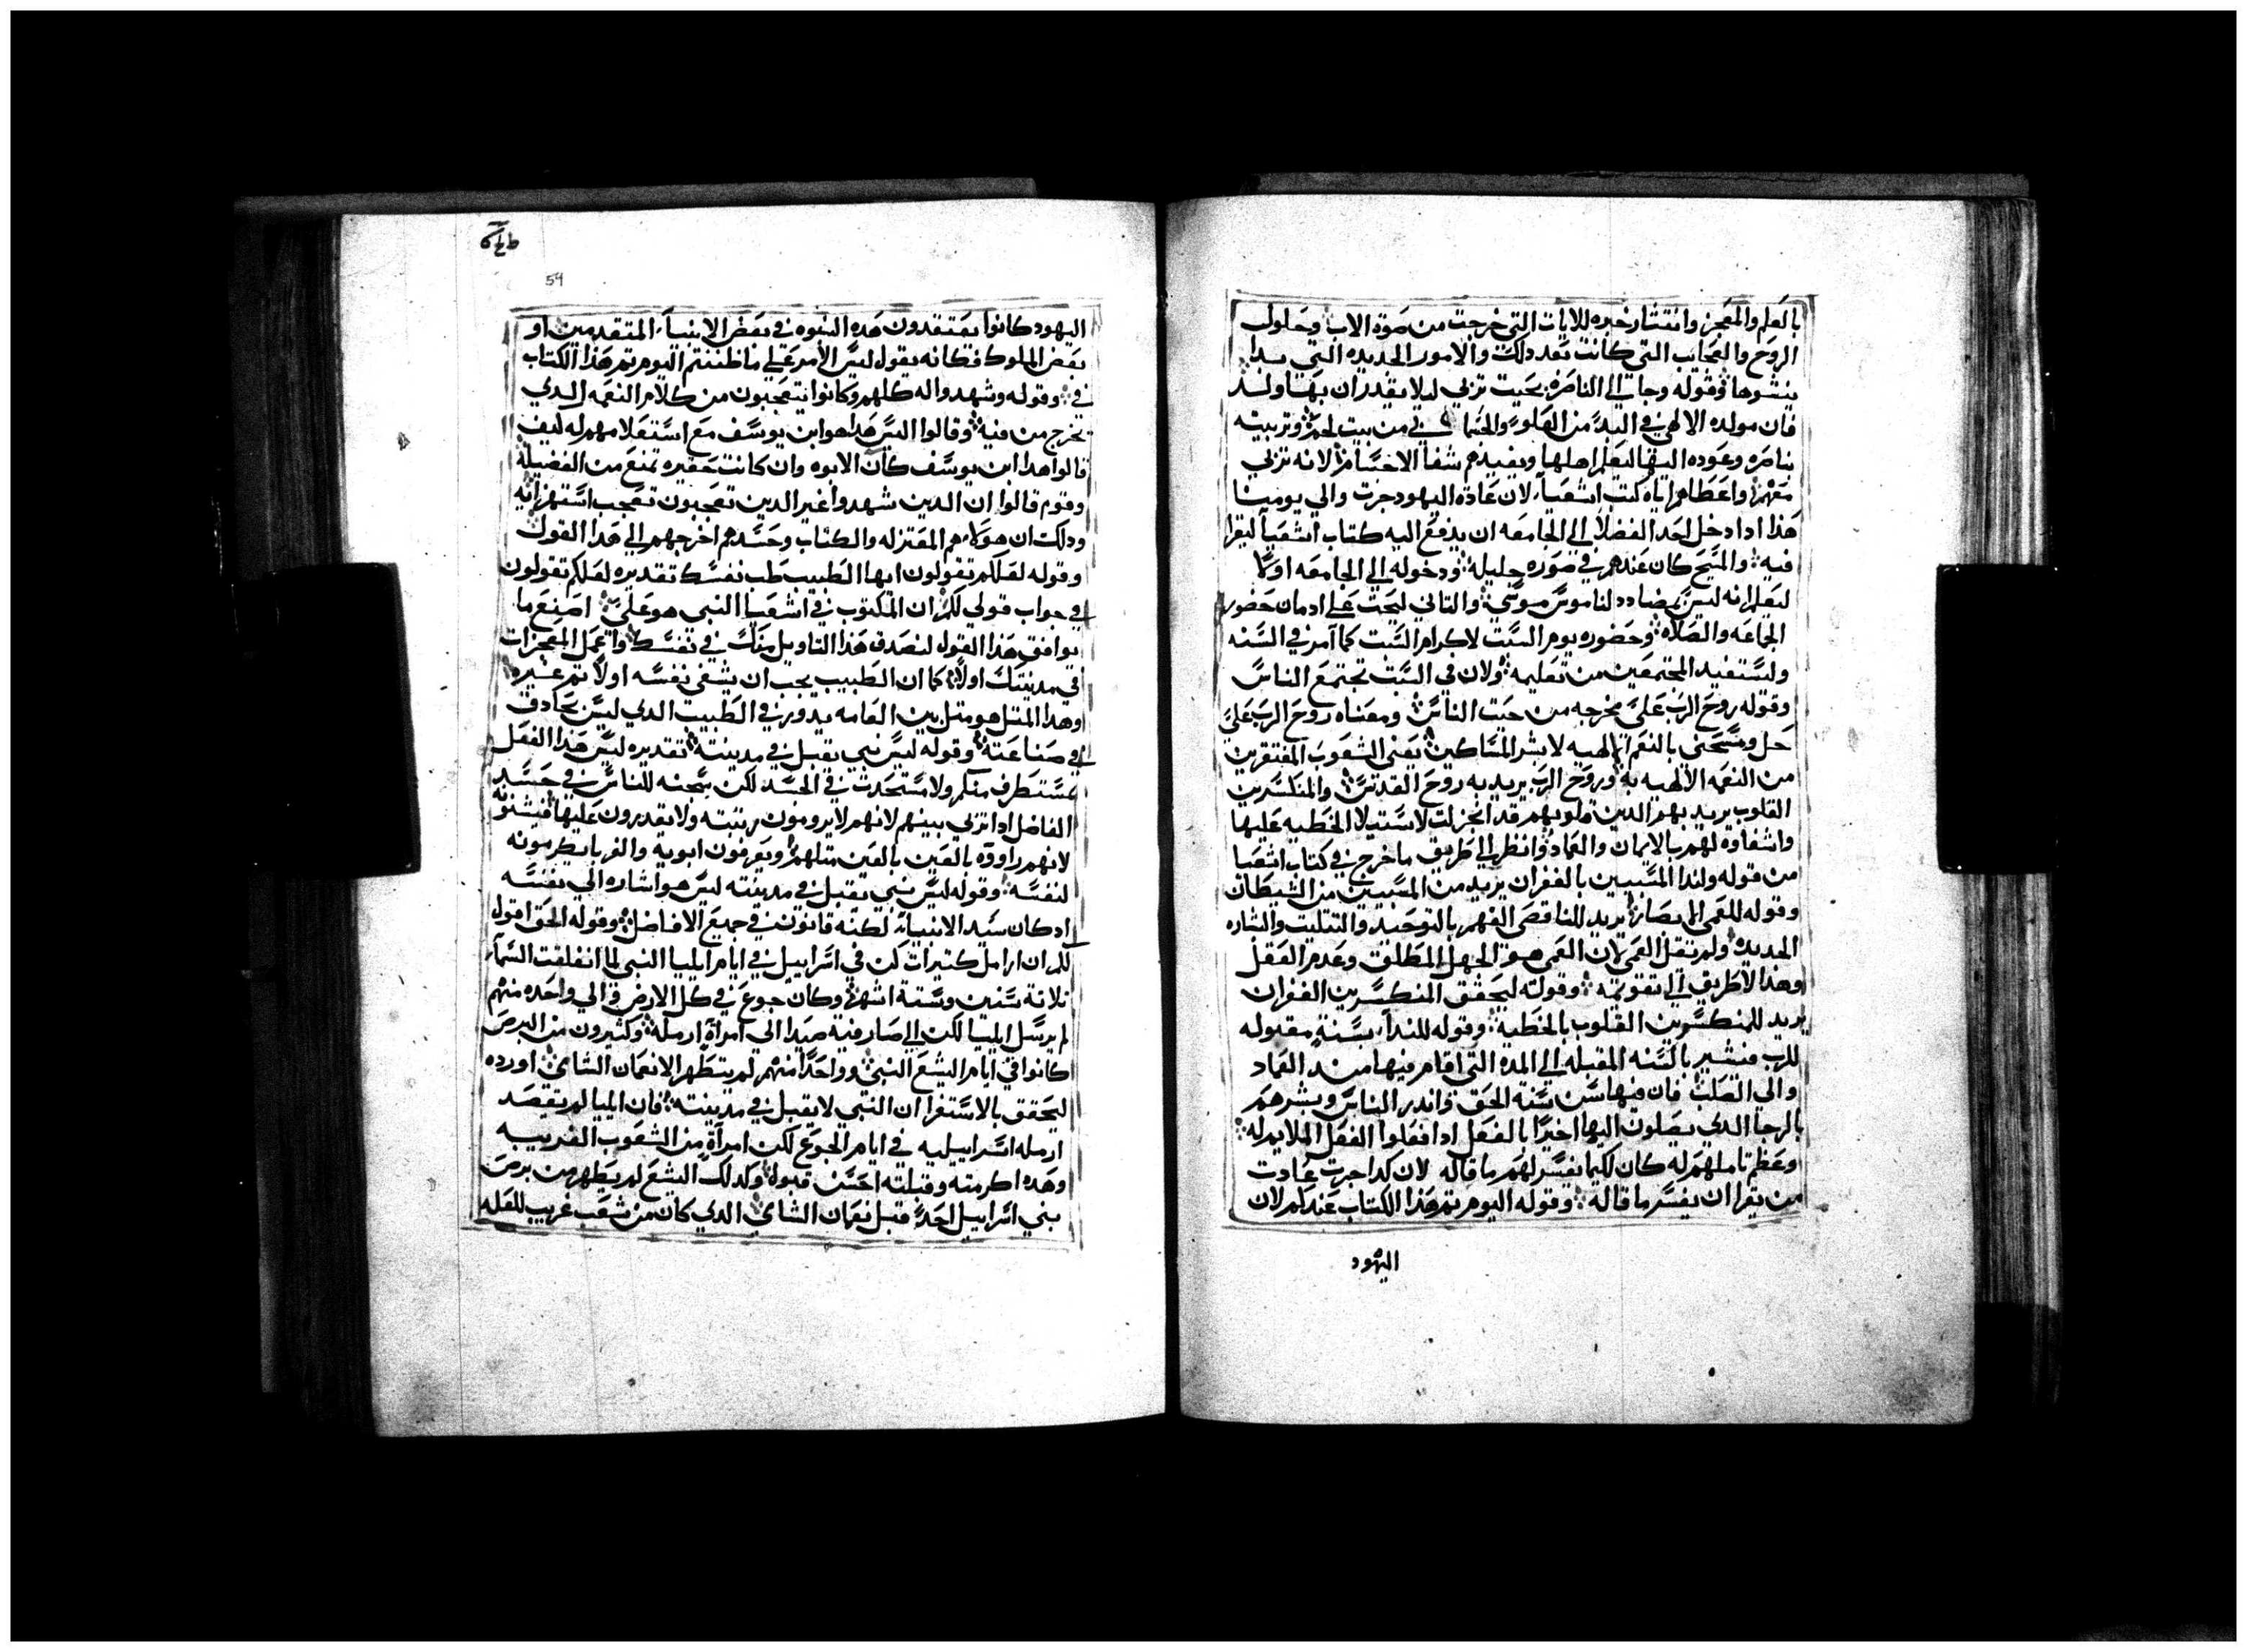 بالعلم والمعجز وانتشار خبره للايات التي خرجت من صوة الاب وحلول
الروح والعجايب التي كانت بعد دلك والامور الجديده التي بدا
ينشوها وقوله وجا الي الناصره بحيت تربي ليلا يقدر ان بها ولد
فان مولده الالهي في البد من العلو والجسماني من بيت لحم وتربيته
بناصره وعوده اليها ليعلم اهلها ويفيدهم شفا الاجسام لانه تربي
معهم واعطاهم اياه كتب اشعيا لان عادة اليهود جرت والي يومنا
هدا ادا دخل احد الفضلا الي الجامعه ان يدفع اليه كتاب اشعيا ليقرا
فيه والمسيح كان عندهم في صوره جليله ودخوله الي الجامعه اولا
ليعلم انه ليس بمضادد لناموس موسي والتاني ليحت علي ادمان حضور
الجماعه والصلاه وحضوره يوم السبت لاكرام السبت كما امر في السنه
وليستفيد المجتمعين من تعليمه ولان في السبت تجتمع الناس
وقوله روح الرب علي مخرجه من حيت الناس ومعناه روح الرب علي
حل ومسحني بالنعم الالهيه لابشر المساكين يعني الشعوب المفتقرين
من النعمه الالهيه به وروح الرب يريد به روح القدس والمنكسرين
القلوب يريد بهم الدين قلوبهم قد انخزلت لاستيلا الخطيه عليها
واشفاوه لهم بالايمان والعماد وانظر الي طريق ما خرج في كتاب اشعيا
من قوله ولندا المسبيين بالغفران يريد من المسبيين من الشيطان
وقوله للعمي الابصار يريد للناقصي الفهم بالتوحيد والتتليت والبشاره
الجديده ولم تقل العمي لان العمي هو الجهل المطلق وعدم العقل
وهدا لا طريق الي تقويمه وقوله ليحقق المنكسرين الغفران
يريد للمنكسرين القلوب بالخطيه وقوله للندا بسنة مقبوله
للرب فنشير بالسنه المقبله الي المده التي اقام فيها مند العماد
والي الصلب فان فيها سن سنة الحق واندر الناس وبشرهم
بالرجا الدي يصلون اليها اخيرا بالفعل ادا فعلوا الفعل الملايم له
وعظم تاملهم له كان لكيما يفسر لهم ما قاله لان كدا جرت عادت
من يقرا ان يفسر ما قاله وقوله اليوم تم هدا الكتاب عندكم لان
اليهود
54
اليهود كانوا يعتقدون هده النبوه في بعض الانبيا المتقدمين او
بعض الملوك فكانه يقول ليس الامر علي ما ظننتم اليوم تم هدا الكتاب
في وقوله وشهدوا له كلهم وكانوا يتعجبون من كلام النعمه الدي
يخرج من فيه وقالوا اليس هدا هو ابن يوسف مع استعلامهم له كيف
قالوا هدا ابن يوسف كان الابوه وان كانت حقيره تمنع من الفضيله
وقوم قالوا ان الدين شهدوا غير الدين تعجبون تعجب استهزا به
ودلك ان هولا هم المعتزله والكتاب وحسدهم اخرجهم الي هدا القول
وقوله لعلكم تقولون ايها الطبيب طب نفسك تقديره لعلكم تقولون
في جواب قولي لكم ان المكتوب في اشعيا النبي هو علي اصنع ما
يوافق هدا القول لنصدق هدا التاويل منك في نفسك واعمل المعجزات
في مدينتك اولا كما ان الطبيب يجب ان يشفي نفسه اولا تم غيره
وهدا المتل هو متل بين العامه يدور في الطبيب الدي ليس بحادق
في صناعته وقوله ليس نبي يقبل في مدينته تقديره ليس هدا الفعل
مستطرف منكم ولا مستحدت في الحسد لكن سجيه للناس في حسد
الفاضل ادا تربي بينهم لانهم لا يرومون رتبته ولا يقدرون عليها فيشنونه
لانهم راووه بالعين بالعين متلهم ويعرفون ابويه والغربا يكرمونه
لنفسه وقوله ليس نبي يقبل في مدينته ليس هو اشاره الي نفسه
اد كان سيد الانبيا لكنه قانون في جميع الافاضل وقوله الحق اقول
لكم ان ارامل كتيرات كن في اسراييل في ايام ايليا النبي لما انغلقت السما
تلاتة سنين وستة اشهر وكان جوع في كل الارض والي واحده منهم
لم يرسل ايليا لكن الي صارفية صيدا الي امراة ارمله وكتيرون من البرص
كانوا في ايام اليشع النبي وواحدا منهم لم يتطهر الا نعمان الشامي اورده
ليحقق بالاستقرا ان النبي لا يقبل في مدينته فان ايليا لم يقصد
ارمله اسراييليه في ايام الجوع لكن امراة من الشعوب الغريبه
وهده اكرمته وقبلته احسن قبول وكدلك اليشع لم يطهر من برص
بني اسراييل احد قبل نعمان الشامي الدي كان من شعب غريب للعله